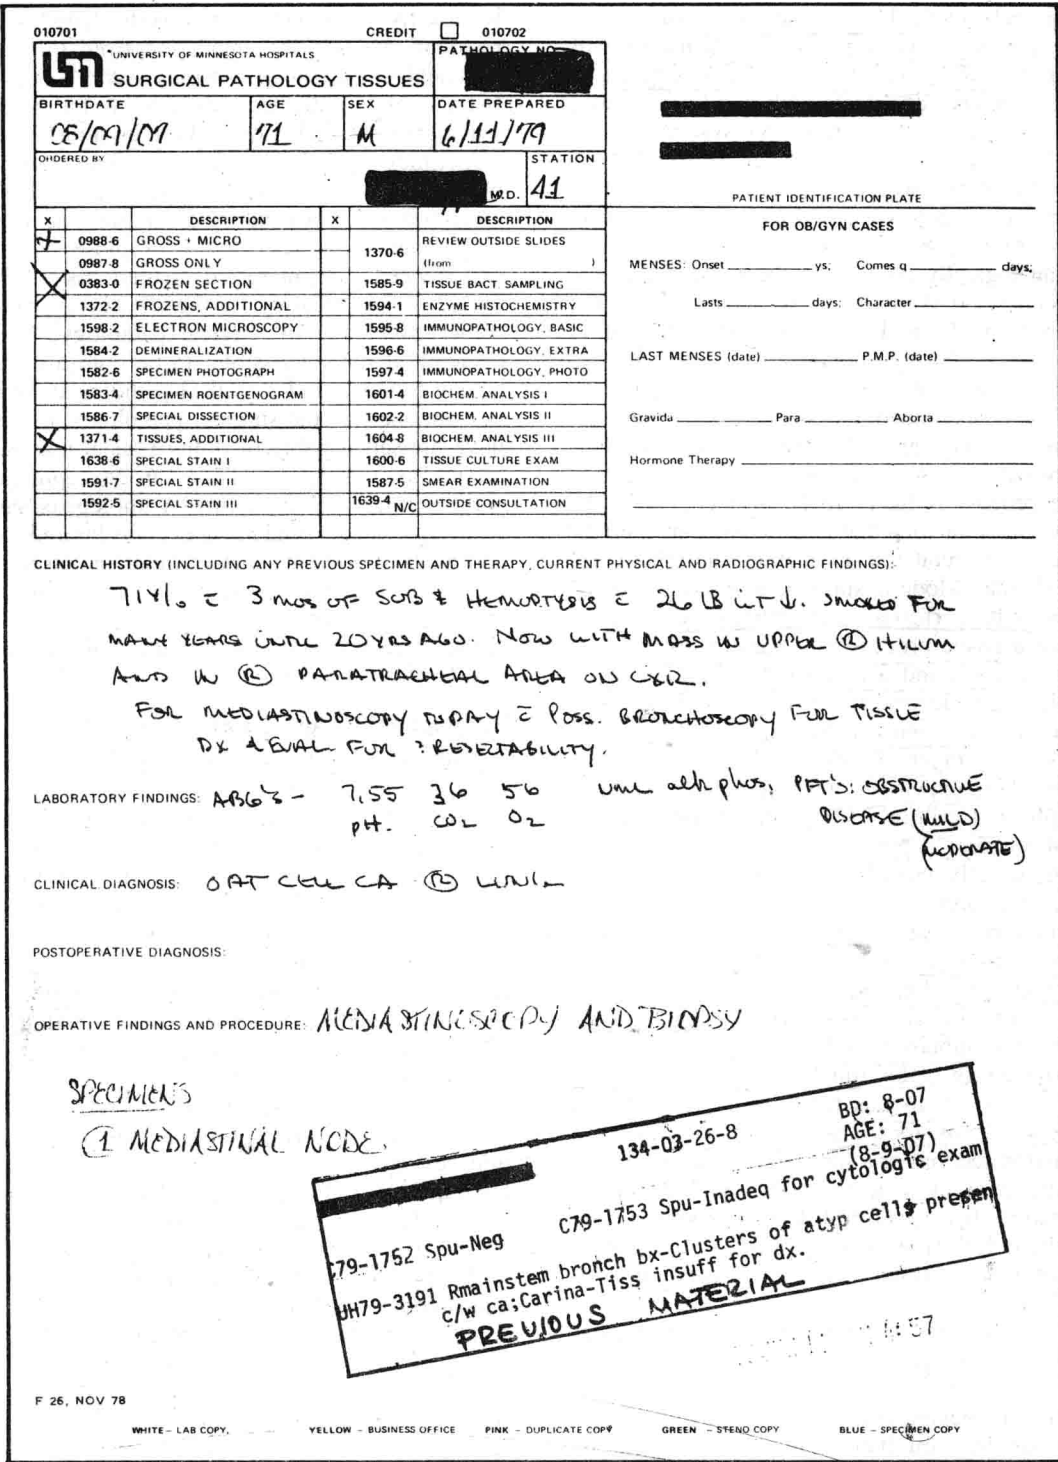 010701 CREDIT 010702
UNIVERSITY OF MINNESOTA HOSPITALS
SURGICAL PATHOLOGY TISSUES
PATHOLOGY NO.
BIRTHDATE AGE SEX DATE PREPARED
08/09/07 71 M 6/11/79
ORDERED BY STATION
M.D. 41
PATIENT IDENTIFICATION PLATE
X DESCRIPTION X DESCRIPTION
X 0988-6 GROSS + MICRO 1370-6 REVIEW OUTSIDE SLIDES
0987-8 GROSS ONLY (from )
X 0383-0 FROZEN SECTION 1585-9 TISSUE BACT. SAMPLING
1372-2 FROZENS, ADDITIONAL 1594-1 ENZYME HISTOCHEMISTRY
1598-2 ELECTRON MICROSCOPY 1595-8 IMMUNOPATHOLOGY, BASIC
1584-2 DEMINERALIZATION 1596-6 IMMUNOPATHOLOGY, EXTRA
1582-6 SPECIMEN PHOTOGRAPH 1597-4 IMMUNOPATHOLOGY, PHOTO
1583-4 SPECIMEN ROENTGENOGRAM 1601-4 BIOCHEM. ANALYSIS I
1586-7 SPECIAL DISSECTION 1602-2 BIOCHEM. ANALYSIS II
X 1371-4 TISSUES, ADDITIONAL 1604-8 BIOCHEM. ANALYSIS III
1638-6 SPECIAL STAIN I 1600-6 TISSUE CULTURE EXAM
1591-7 SPECIAL STAIN II 1587-5 SMEAR EXAMINATION
1592-5 SPECIAL STAIN III 1639-4 N/C OUTSIDE CONSULTATION
FOR OB/GYN CASES
MENSES: Onset ys; Comes q days;
Lasts days; Character
LAST MENSES (date) P.M.P. (date)
Gravida Para Aborta
Hormone Therapy
CLINICAL HISTORY (INCLUDING ANY PREVIOUS SPECIMEN AND THERAPY, CURRENT PHYSICAL AND RADIOGRAPHIC FINDINGS):
71 Y/o c̄ 3 mos OF SOB & HEMOPTYSIS c̄ 26 LB WT ↓. SMOKED FOR
MANY YEARS UNTIL 20 YRS AGO. NOW WITH MASS IN UPPER Ⓡ HILUM
AND IN Ⓡ PARATRACHEAL AREA ON CXR.
FOR MEDIASTINOSCOPY TODAY c̄ POSS. BRONCHOSCOPY FOR TISSUE
DX & EVAL FOR ? RESECTABILITY.
LABORATORY FINDINGS: ABG'S - 7.55 36 56 alk phos, PFT'S: OBSTRUCTIVE
pH. CO2 O2 DISEASE (MILD)
(MODERATE)
CLINICAL DIAGNOSIS: OAT CELL CA Ⓡ LUNG
POSTOPERATIVE DIAGNOSIS:
OPERATIVE FINDINGS AND PROCEDURE: MEDIASTINOSCOPY AND BIOPSY
SPECIMENS
① MEDIASTINAL NODE.
134-03-26-8 BD: 8-07
AGE: 71
(8-9-07)
C79-1752 Spu-Neg C79-1753 Spu-Inadeq for cytologic exam
UH79-3191 Rmainstem bronch bx-Clusters of atyp cells presen
c/w ca;Carina-Tiss insuff for dx.
PREVIOUS MATERIAL
F 26, NOV 78
WHITE - LAB COPY, YELLOW - BUSINESS OFFICE PINK - DUPLICATE COPY GREEN - STENO COPY BLUE - SPECIMEN COPY